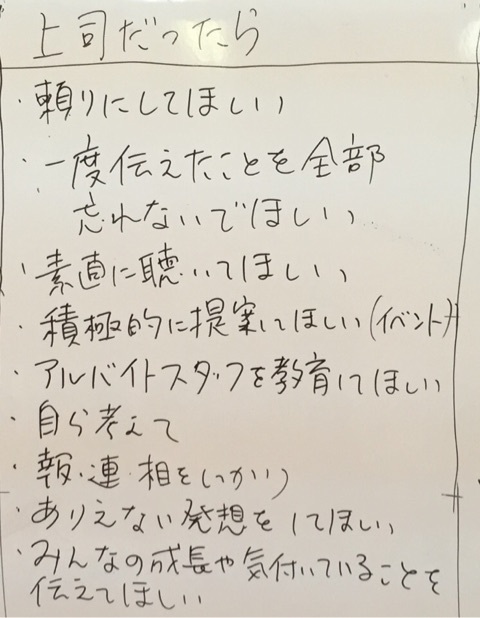 上司だったら
・頼りにしてほしい
・一度伝えたことを全部
忘れないでほしい
・素直に聴いてほしい
・積極的に提案してほしい(イベント)
・アルバイトスタッフを教育してほしい
・自ら考えて
・報・連・相をしっかり
・ありえない発想をしてほしい
・みんなの成長や気付いていることを
伝えてほしい